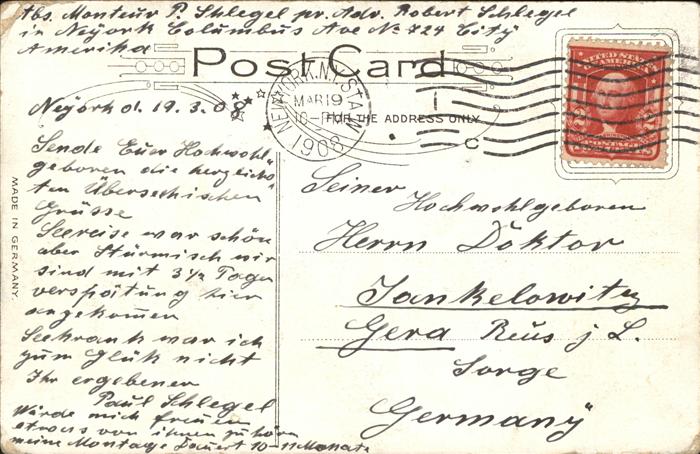 Abs. Monteur P. Schlegel pr. Adr. Robert Schlegel
in Neÿork Columbus Ave No 724 City
Amerika
Post Card
UNITED STATES
OF AMERICA
NEW YORK, N.Y. STA. W.
MAR 19
1908
FOR THE ADDRESS ONLY
C
Neÿork d. 19.3.08
Sende Euer Hochwohl
geboren die herzlichs
ten Überseeischen
Grüsse
Seereise war schön
aber Stürmisch wir
sind mit 3 1/2 Tagen
verspätung hier
angekommen
Seekrank war ich
zum Glük nicht
Ihr ergebener
Paul Schlegel
Würde mich freuen
etwas von ihnen zu hören
meine Montage Dauert 10-11 Monate
MADE IN GERMANY.
Seiner
Hochwohlgeboren
Herrn Doktor
Jankelowitz
Gera Reus j L.
Sorge
Germanÿ